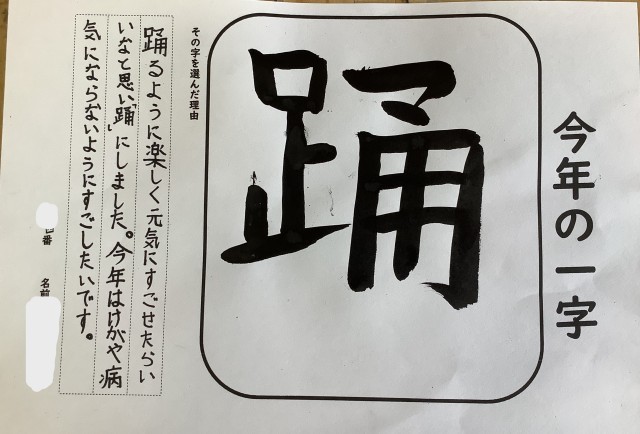 今年の一字
踊
その字を選んだ理由
踊るように楽しく元気にすごせたらい
いなと思い「踊」にしました。今年はけがや病
気にならないようにすごしたいです。
番
名前